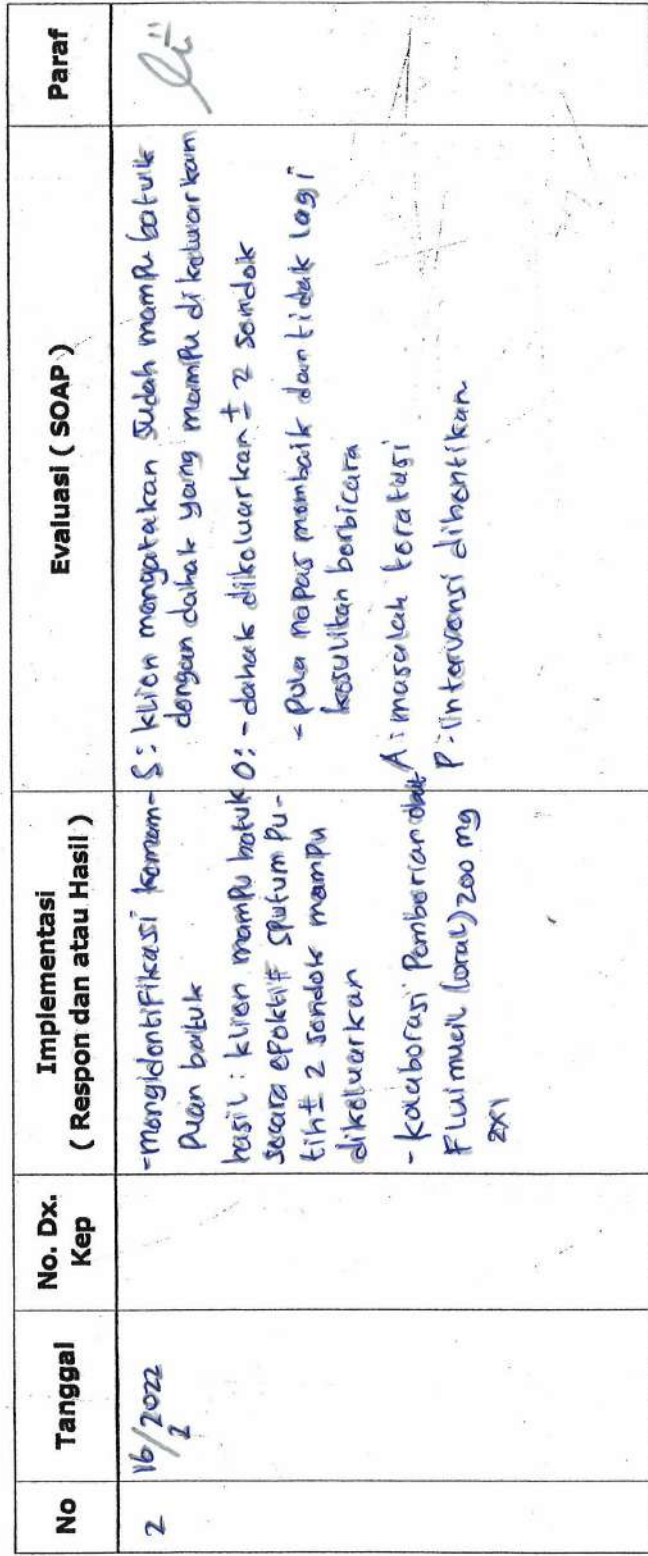 No
Tanggal
No. Dx.
Kep
Implementasi
( Respon dan atau Hasil )
Evaluasi ( SOAP )
Paraf
2
16/2022
2
- mengidentifikasi kemam-
puan batuk
hasil : klien mampu batuk
secara epektif sputum pu-
tih ± 2 sendok mampu
dikeluarkan
- kolaborasi Pemberian obat
Fluimucil (oral) 200 mg
2x1
S : klien mengatakan sudah mampu batuk
dengan dahak yang mampu dikeluarkan
O : - dahak dikeluarkan ± 2 sendok
- pola napas membaik dan tidak lagi
kesulikan berbicara
A : masalah teratasi
P : intervensi dihentikan